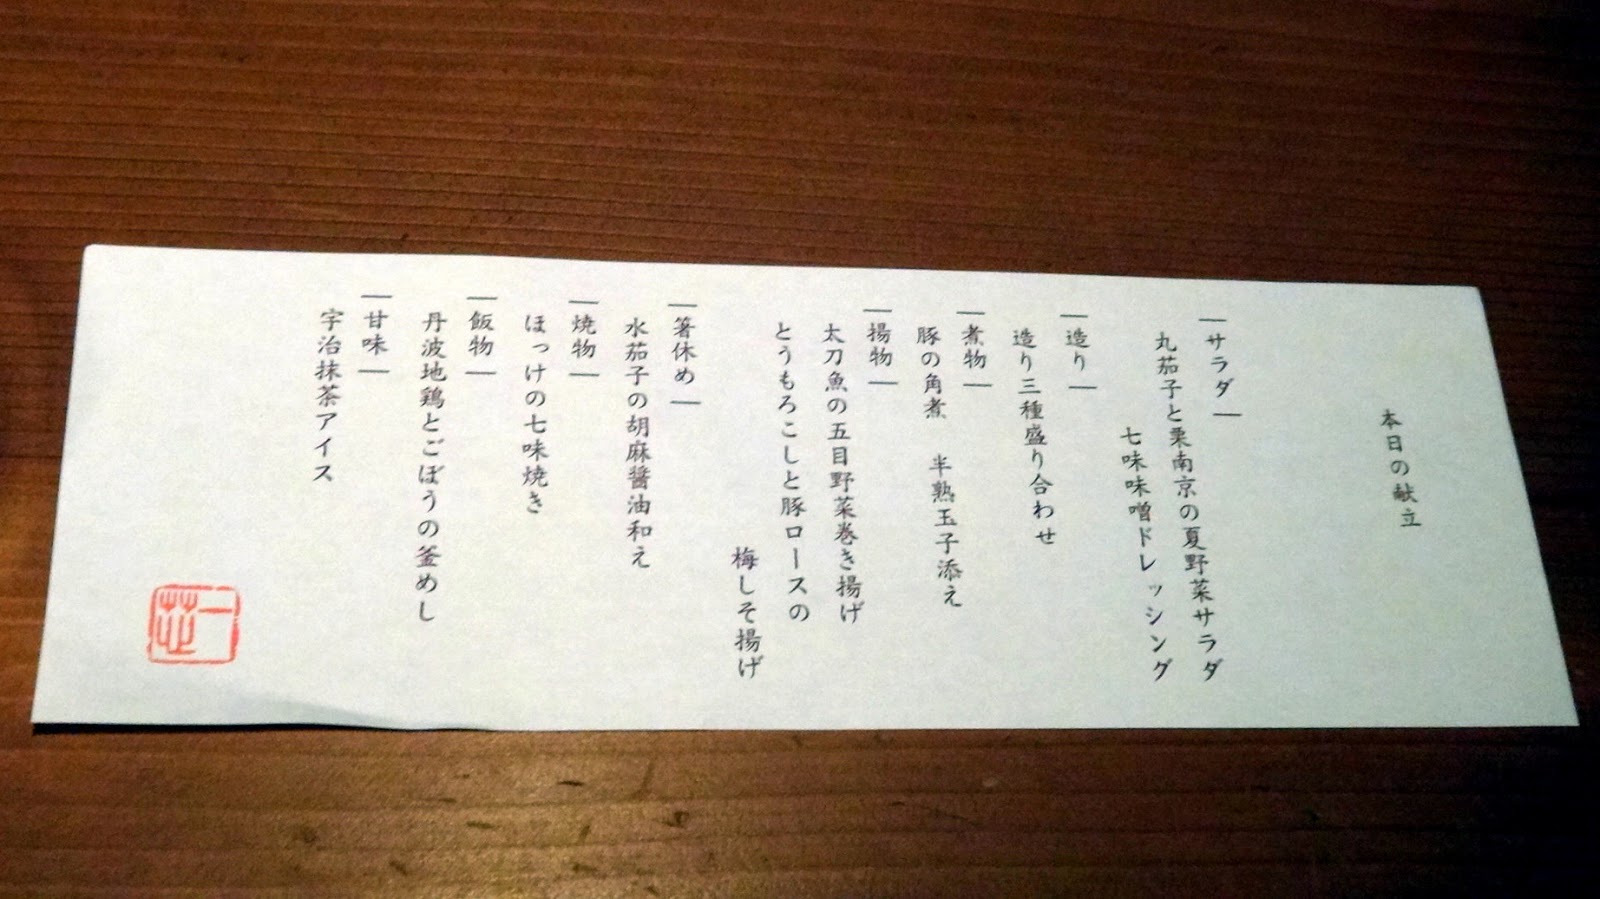 本日の献立
―サラダ―
丸茄子と栗南京の夏野菜サラダ
七味味噌ドレッシング
―造り―
造り三種盛り合わせ
―煮物―
豚の角煮　半熟玉子添え
―揚物―
太刀魚の五目野菜巻き揚げ
とうもろこしと豚ロースの
梅しそ揚げ
―箸休め―
水茄子の胡麻醤油和え
―焼物―
ほっけの七味焼き
―飯物―
丹波地鶏とごぼうの釜めし
―甘味―
宇治抹茶アイス
一芯